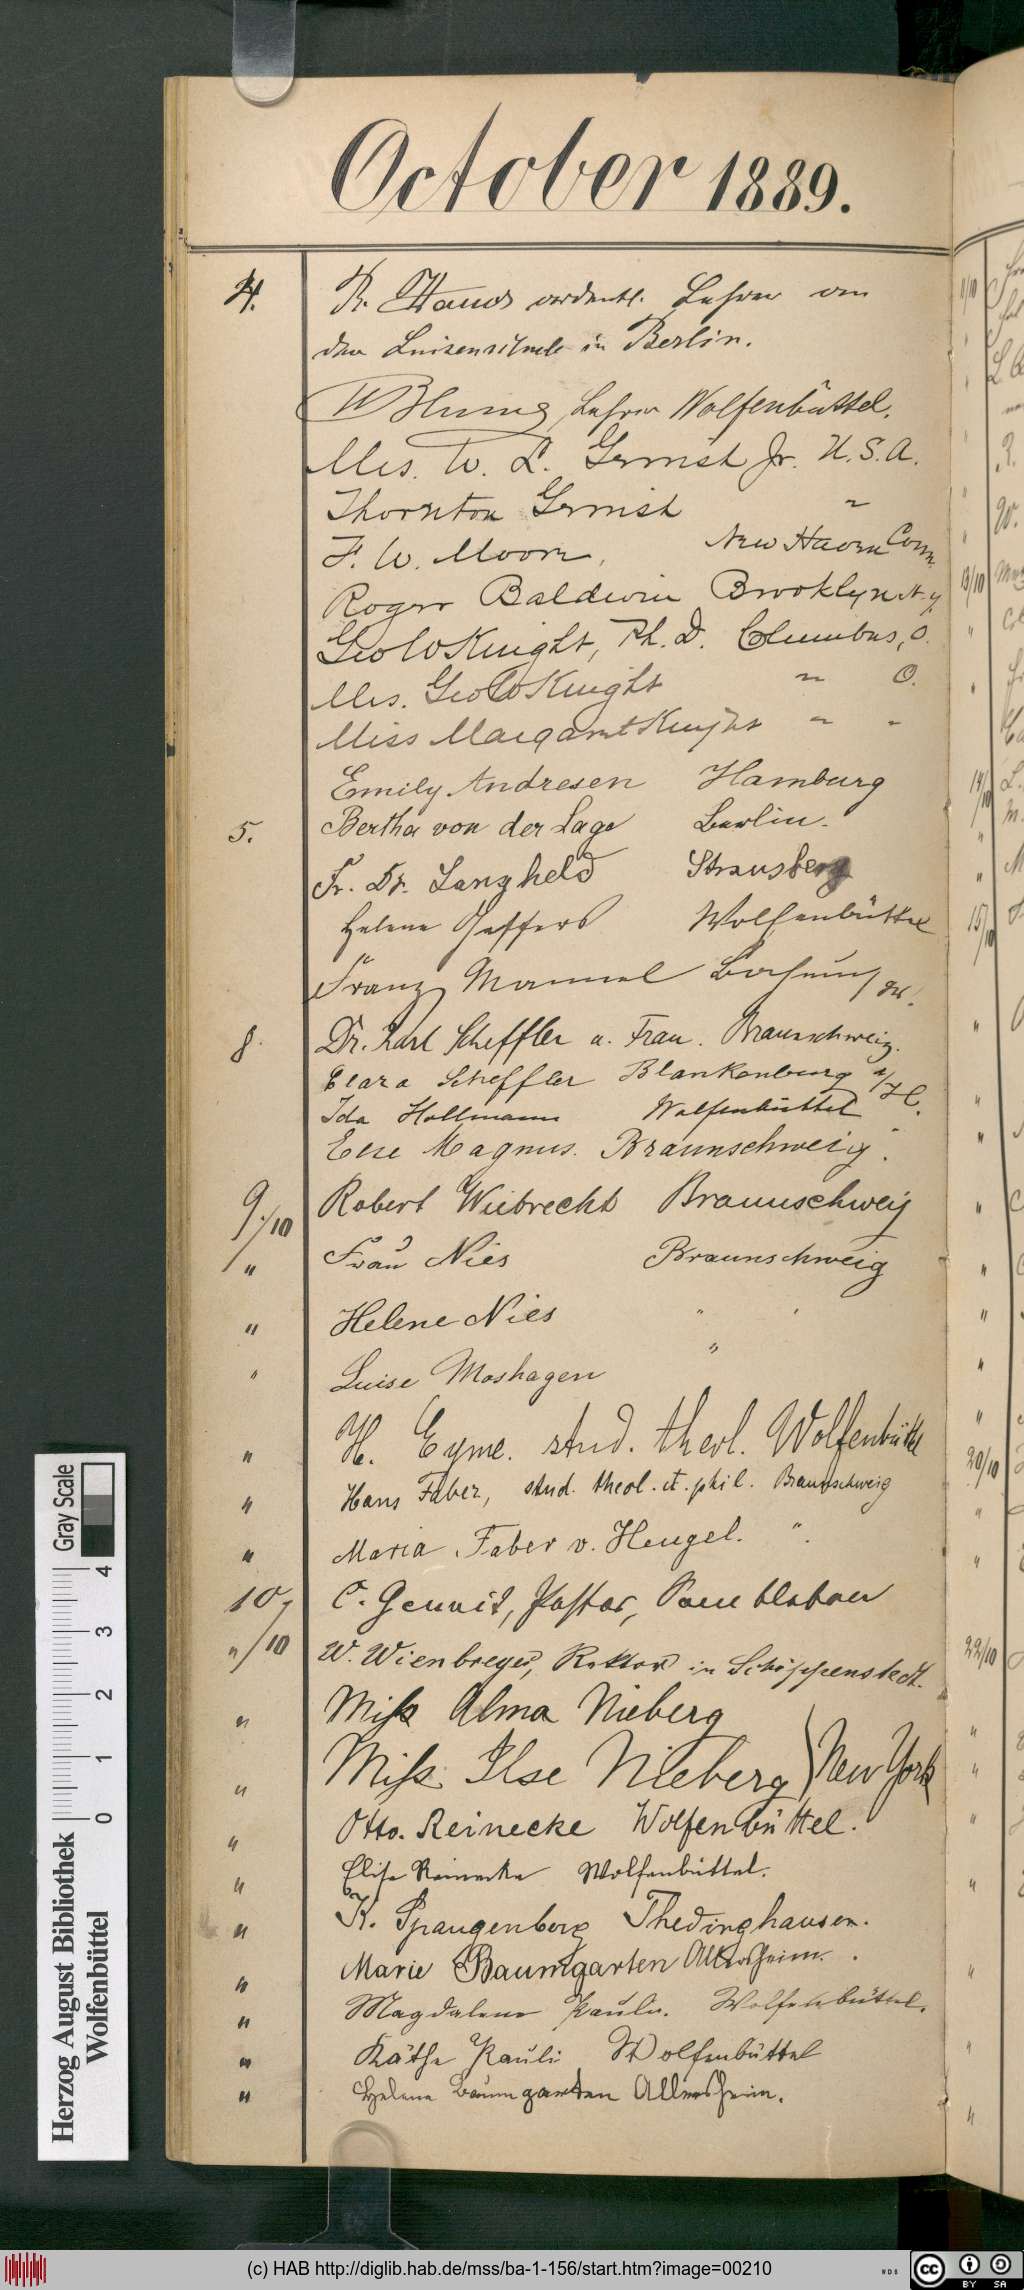 October 1889.
4. R. ordentl. Lehrer an
der Luisenschule in Berlin.
Lehrer Wolfenbüttel.
Mrs. W. L. Jr. U.S.A.
Thornton "
F. W. Moore, New Haven Conn.
Roger Baldwin Brooklyn N.Y.
Geo W Knight, Ph. D. Columbus, O.
Mrs. Geo W Knight " O.
Miss Margaret Knight " "
Emily Andresen Hamburg
5. Bertha von der Lage Berlin.
Fr. Dr. Langheld Strausberg
Helene Jeffers Wolfenbüttel
Franz
8. Dr. Karl Scheffler u. Frau. Braunschweig.
Clara Scheffler Blankenburg a/H.
Ida Hollmann Wolfenbüttel
Else Magnus. Braunschweig.
9./10 Robert Wiebrecht Braunschweig
" Frau Nies Braunschweig
" Helene Nies "
" Luise Moshagen "
" H. Eyme. stud. theol. Wolfenbüttel
" Hans Faber, stud. theol. et. phil. Braunschweig
" Maria Faber v. Hengel. "
10. C. Pastor,
"/10 W. Wienbreyer, Rektor in Schöppenstedt.
" Miss Alma Nieberg
" Miss Ilse Nieberg } New York
" Otto. Reinecke Wolfenbüttel.
" Elise Reinecke Wolfenbüttel.
" K. Spangenberg Thedinghausen.
" Marie Baumgarten Allersheim.
" Magdalene Pauli. Wolfenbüttel.
" Käthe Pauli Wolfenbüttel
" Helene Baumgarten Allersheim.
1/10
13/10
14/10
15/10
20/10
22/10
Gray Scale
0 1 2 3 4
Herzog August Bibliothek
Wolfenbüttel
(c) HAB http://diglib.hab.de/mss/ba-1-156/start.htm?image=00210
cc BY SA